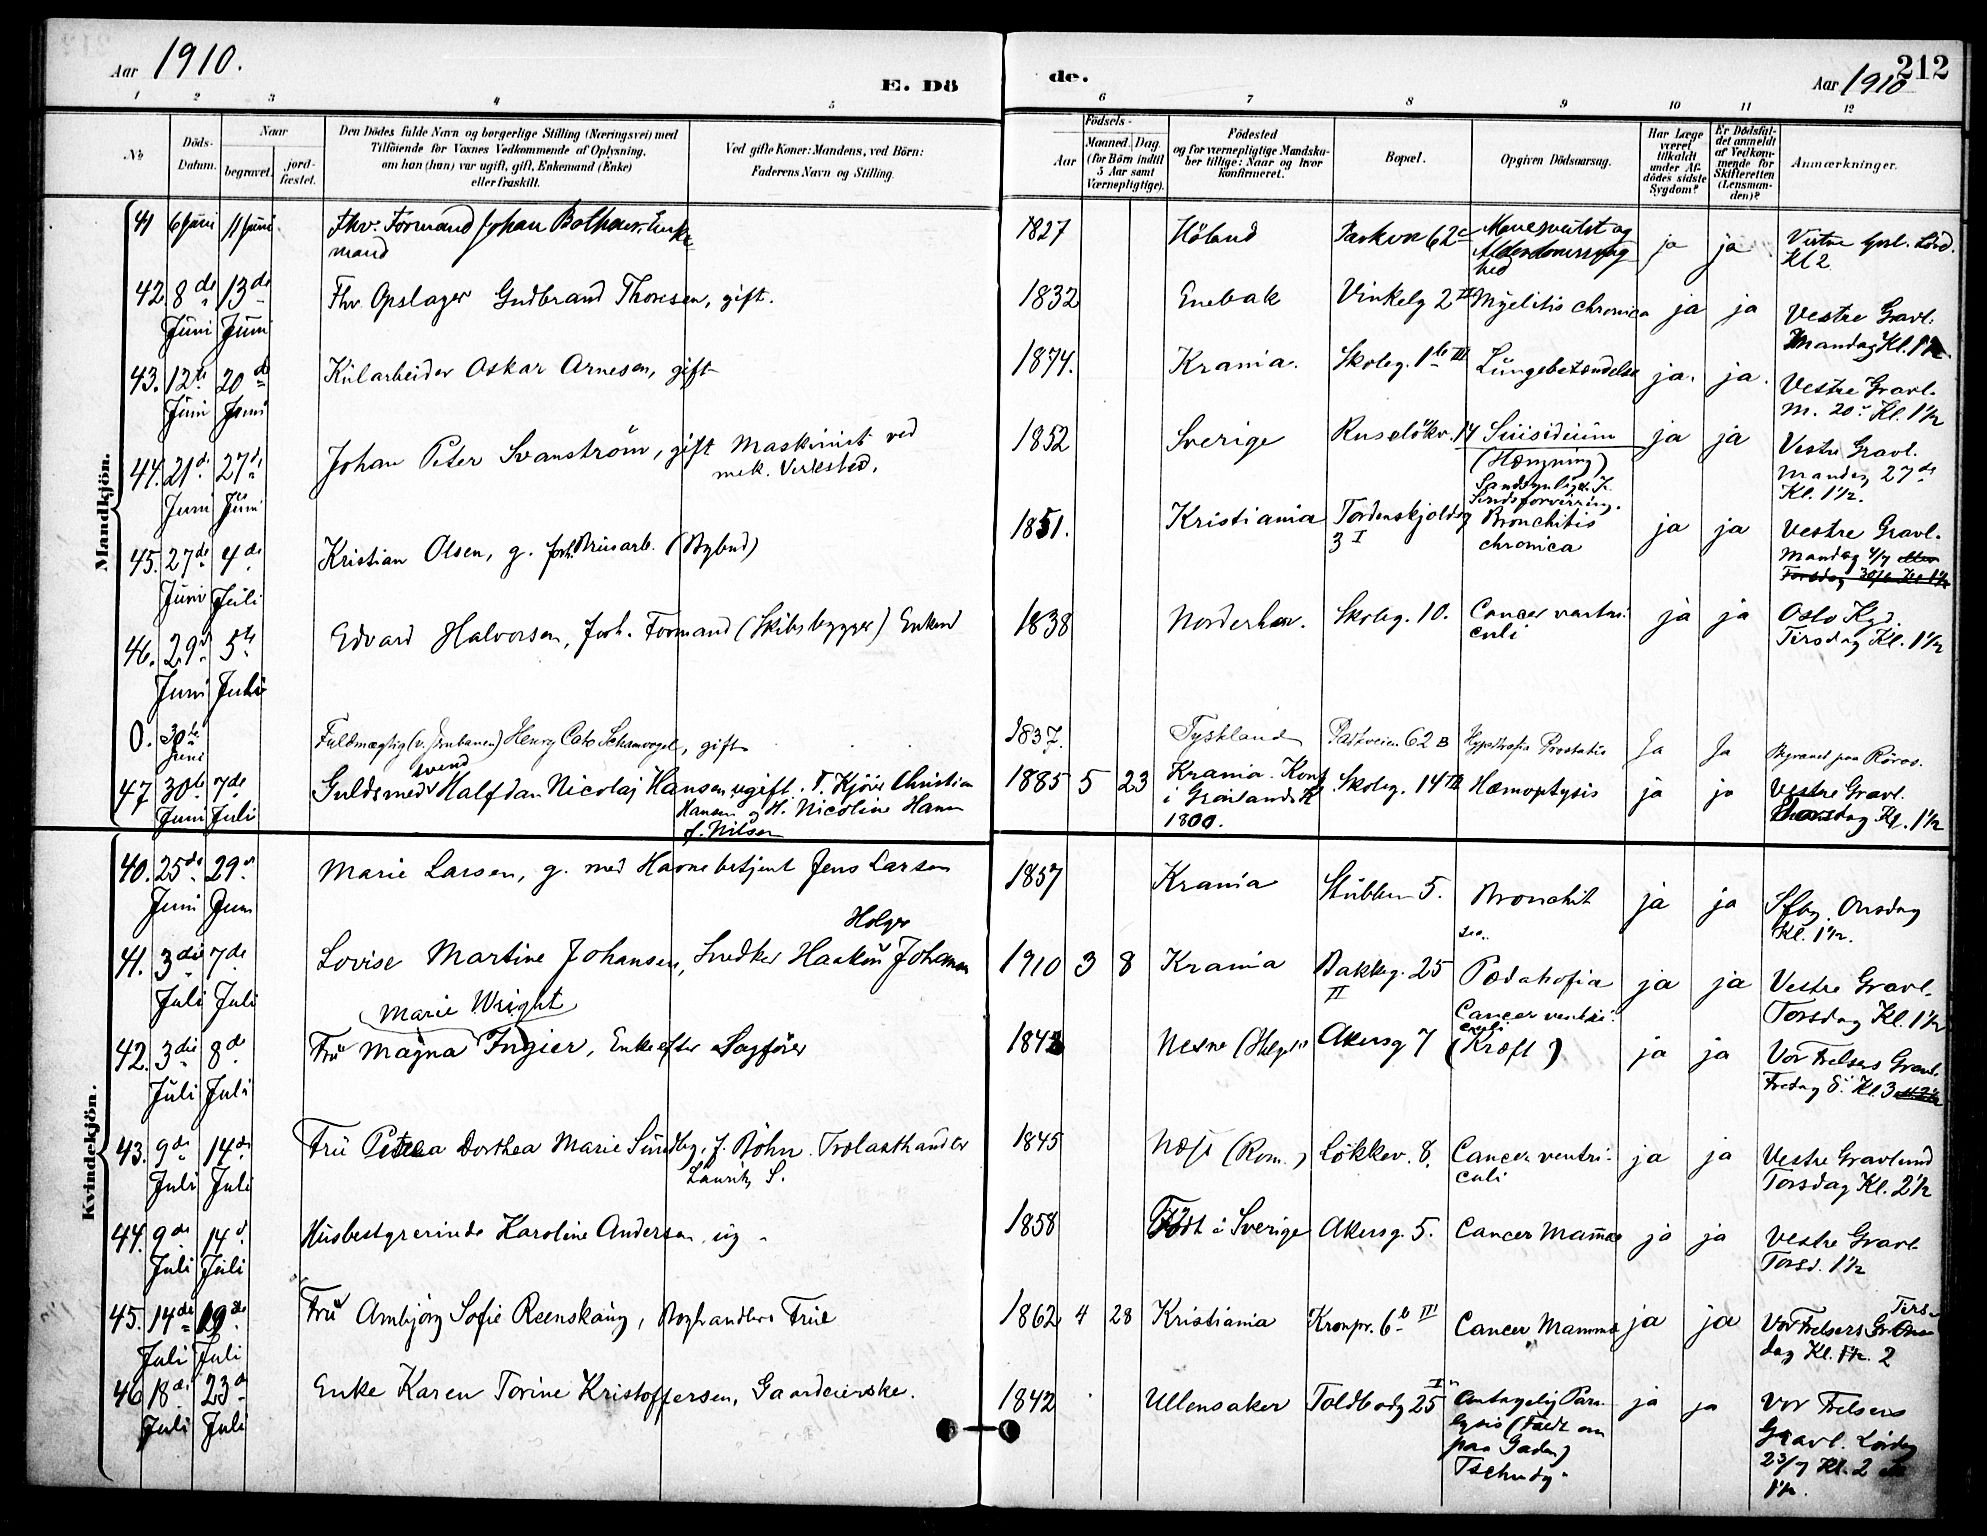 Aar 1910.
E. Dö
de.
212
Aar 1910
1 2 3 4 5 6 7 8 9 10 11 12
No
Döds-
Datum.
Naar
begravet.
jord-
fæstet.
Den Dödes fulde Navn og borgerlige Stilling (Næringsvei) med
Tilföiende for Voxnes Vedkommende af Oplysning,
om han (hun) var ugift, gift, Enkemand (Enke)
eller fraskilt.
Ved gifte Koner: Mandens, ved Börn:
Faderens Navn og Stilling.
Födsels-
Aar
Maaned. Dag.
(for Börn indtil
5 Aar samt
Værnepligtige).
Födested
og for værnepligtige Mandska-
ber tillige: Naar og hvor
Konfirmeret.
Bopæl.
Opgiven Dödsaarsag.
Har Læge
været
tilkaldt
under Af-
dödes sidste
Sygdom?
Er Dödsfal-
det anmeldt
af Vedkom-
mende for
Skifteretten
(Lensman-
den)?
Anmærkninger.
Mandkjön.
41 6 Juni 11 Juni Fhv. Formand Johan Enke
mand
1827 Höland Parkvn 62c ja ja Vestre Grl. Lörd.
Kl 2
42. 8de Juni 13de Juni Fhv Opslager Gudbrand Thoresen, gift.
1832 Enebak Vinkelg 2 III Myelitis chronica ja ja Vestre Gravl.
Mandag Kl. 1½
43. 12te Juni 20de Juni Kularbeider Oskar Arnesen, gift
1874. Krania. Skoleg. 1b III Lungebetændelse ja. ja. Vestre Gravl.
M. 20de Kl. 1½
44. 21de Juni 27de Juni Johan Peter Svanström, gift Maskinist ved
mek. Verksted.
1852 Sverige Ruselökv. 14 Suisidium ja ja Vestre Gravl.
(Hængning) Mandag 27de
Sindsforvirring. Kl. 1½.
45. 27de Juni 4de Juli Kristian Olsen, g. forh. (Bybud)
1851. Kristiania Tordenskjoldsg 3 I Bronchitis
chronica
ja ja Vestre Gravl.
Mandag 4/7
Torsdag 30/6 Kl 1½
46. 29de Juni 5te Juli Edvard Halvorsen, forh. Formand (Skibsbygger) Enkemd
1838 Norderhov. Skoleg. 10. Cancer ventri
culi
ja ja Oslo Kgd.
Tirsdag Kl. 1½
0. 30te Juni Fuldmægtig (v. Jernbanen) Henry Cato Schanvogel, gift
1837. Tyskland Parkveien 62 B Hypertrofia Prostatis Ja Ja Begravet paa Röros.
47 30te Juni 7de Juli Guldsmedsvend Halfdan Nicolaj Hansen ugift. F. Kjörer Christian
Hansen og H. Nicoline Hansen
f. Nilsen
1885 5 23 Krania. Konf
i Grönlands K
1800.
Skoleg. 14 III Hæmoptysis ja ja Vestre Gravl.
Torsdag Kl. 1½
Kvindekjön.
40. 25de Juni 29de Juni Marie Larsen, g. med Havnebetjent Jens Larsen
1857 Krania Stubben 5. Bronchit ja ja Sfby. Onsdag
Kl. 1½.
41. 3die Juli 7de Juli Lovise Martine Johansen, Snedker Haakon Johansen
Holger
1910 3 8 Krania Bakkeg. 25
II
Pædatrofia ja ja Vestre Gravl.
Torsdag Kl. 1½
Marie Wright
42. 3die Juli 8de Juli Fru Magna Ingier, Enke efter Sagförer
1843 Nesne (Helgel.) Akersg 7 Cancer ventri
culi
(Kræft) ja ja Vor Frelsers Gravl.
Fredag 8de Kl. 3
43. 9de Juli 14de Juli Fru Petrea Dorthea Marie Sundby, f. Böhn. Trælasthandler
Lauritz S.
1845 Næs (Rom.) Lökkev. 8. Cancer ventri-
culi
ja ja Vestre Gravlund
Torsdag Kl. 2½
44. 9de Juli 14de Juli Husbestyrerinde Karoline Andersen ug.
1858 Födt i Sverige Akersg. 5. Cancer Mammæ ja ja Vestre Gravl.
Torsd. 1½
45. 14de Juli 19de Juli Fru Ambjörg Sofie Reenskaug, Boghandlers Frue
1862 4 28 Kristiania Kronpr. 6b III Cancer Mammæ ja ja Vor Frelsers Gr. Tirs-
dag Kl. 2
46 18de Juli 23de Juli Enke Karen Torine Kristoffersen, Gaardeierske.
1842 Ullensaker Toldbodg 25 I Antagelig Para-
lysis (Faldt om
paa Gaden)
Tschudy.
ja ja Vor Frelsers
Gravl. Lördag
23/7 Kl. 2
1½.